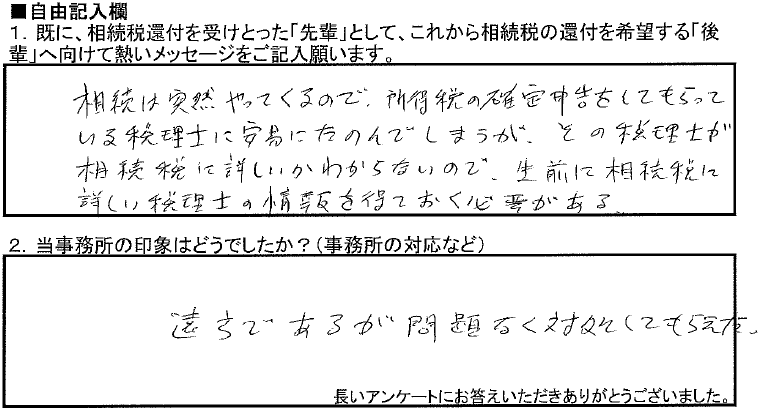 ■自由記入欄
1. 既に、相続税還付を受けとった「先輩」として、これから相続税の還付を希望する「後
輩」へ向けて熱いメッセージをご記入願います。
相続は突然やってくるので、所得税の確定申告をしてもらって
いる税理士に安易にたのんでしまうが、その税理士が
相続税に詳しいかわからないので、生前に相続税に
詳しい税理士の情報を得ておく必要がある
2. 当事務所の印象はどうでしたか？（事務所の対応など）
遠方であるが問題なく対処してもらえた。
長いアンケートにお答えいただきありがとうございました。